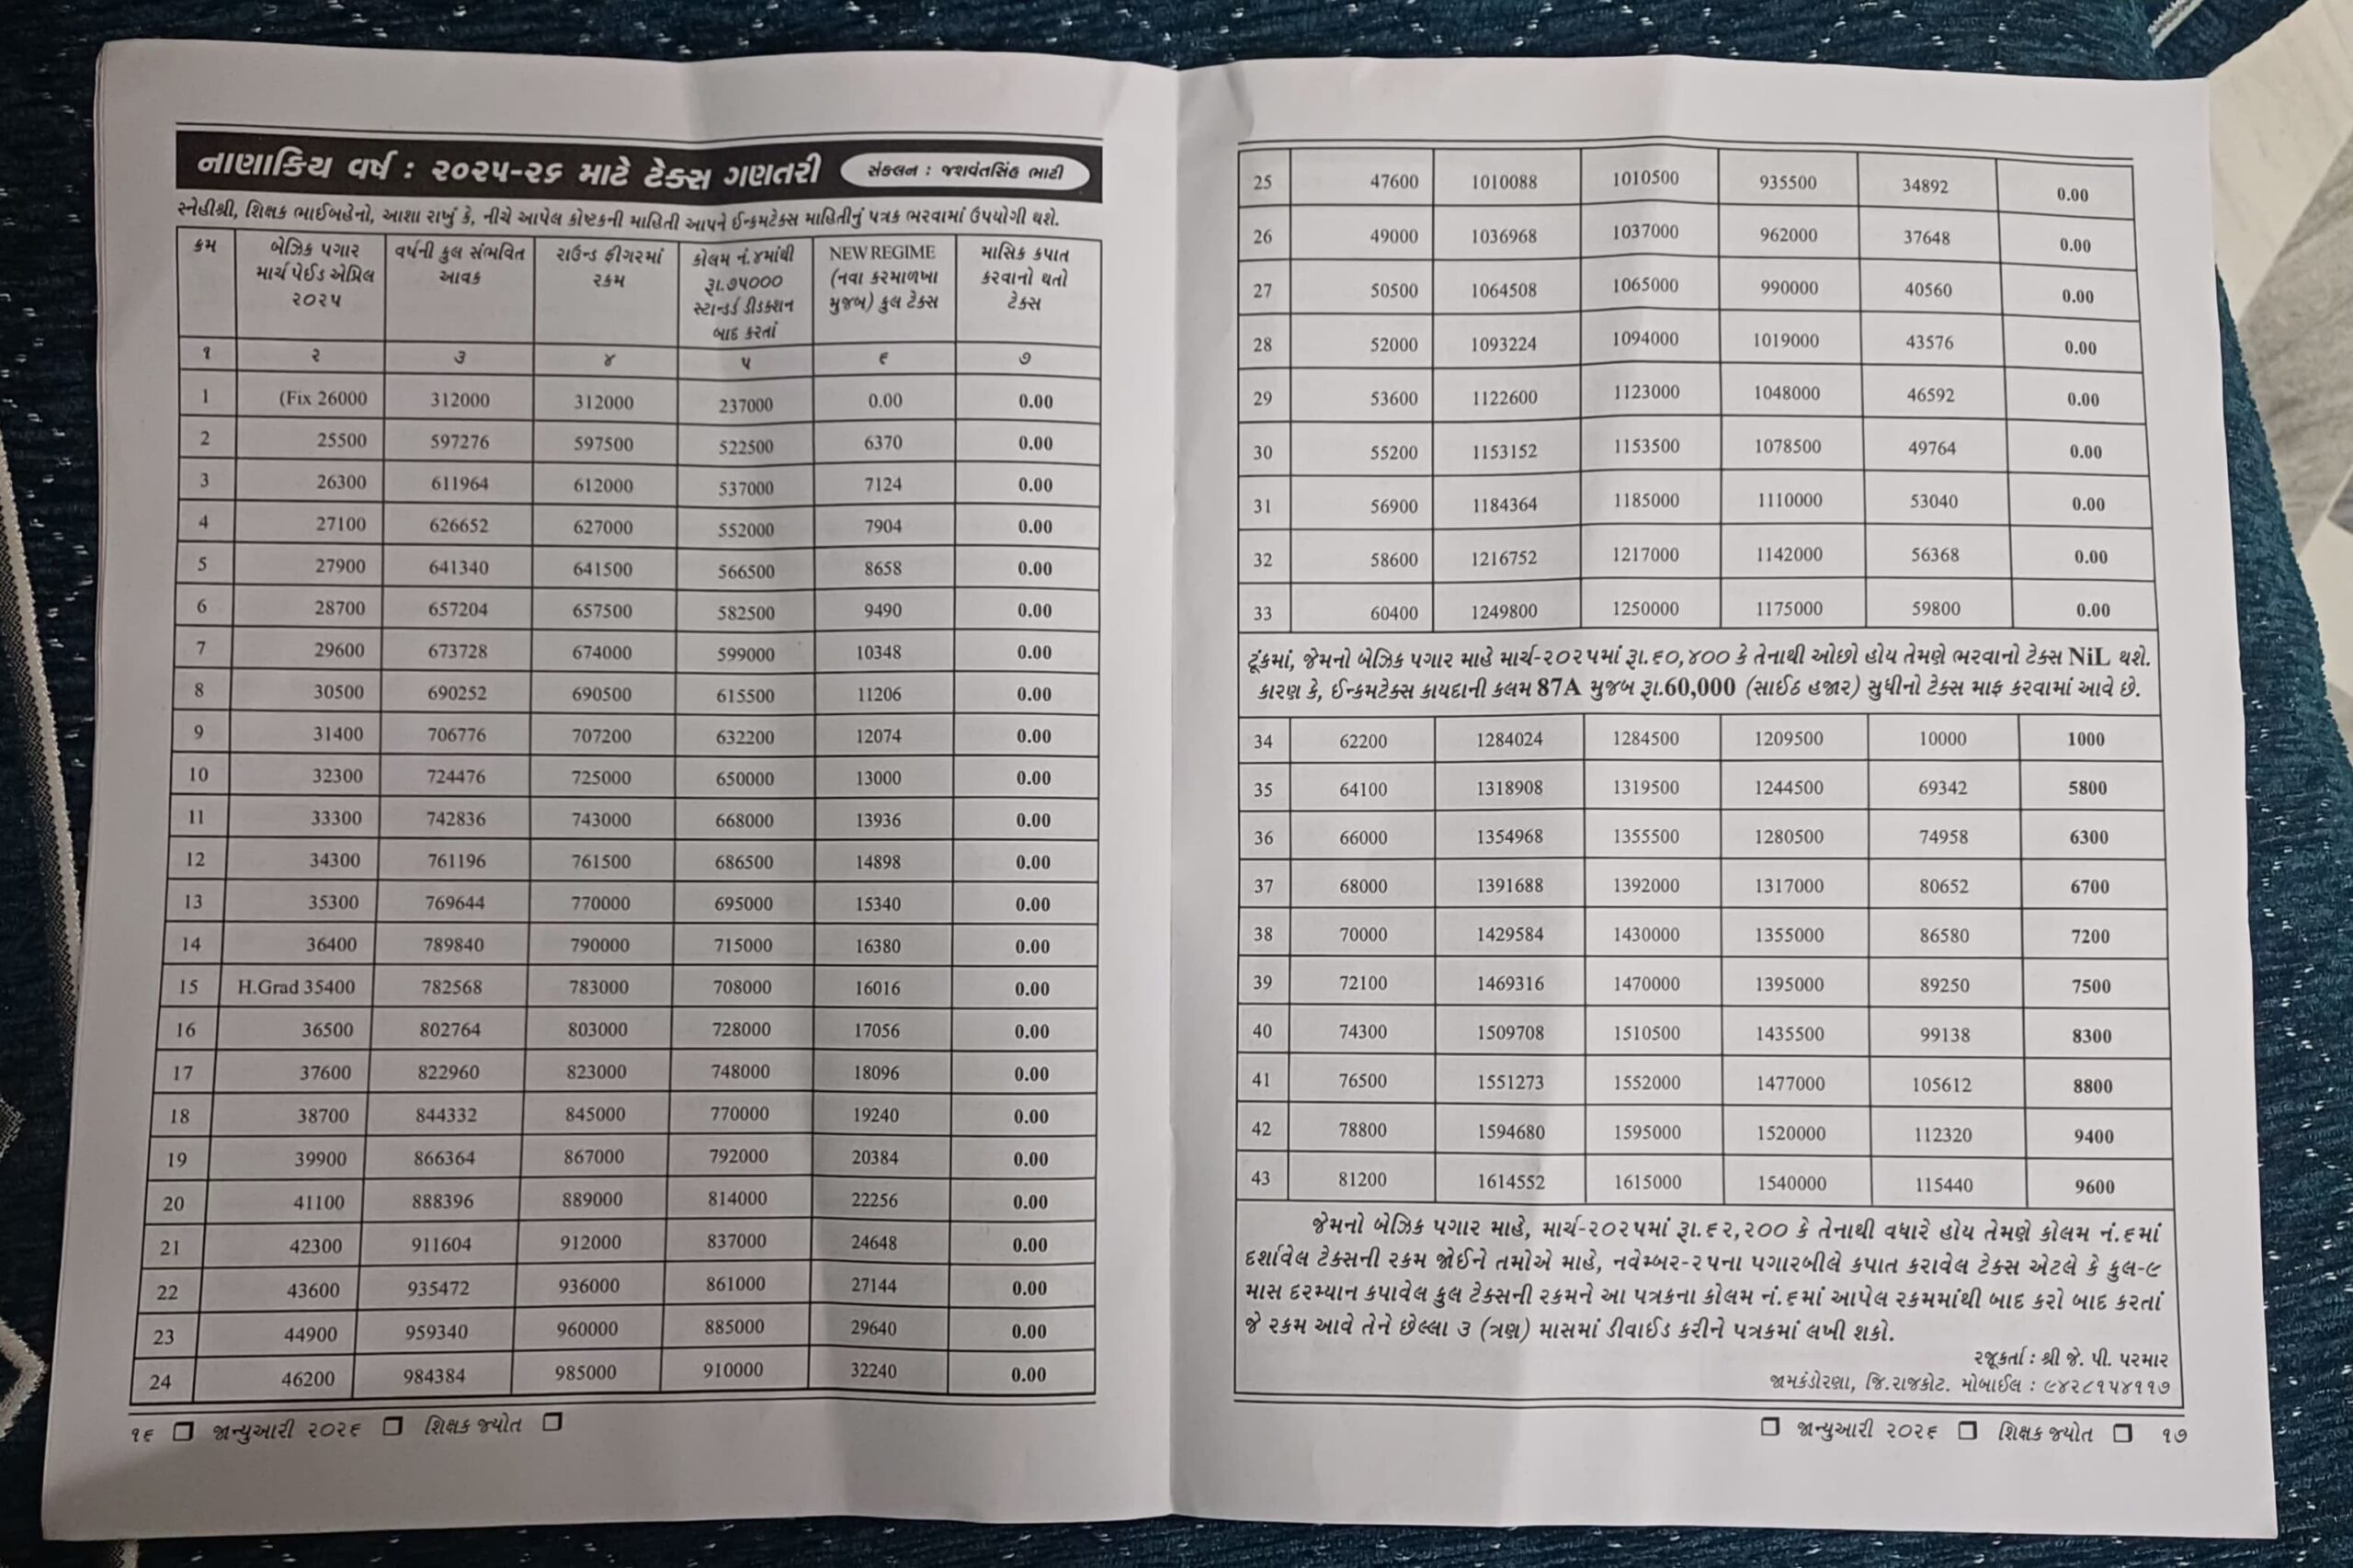 નાણાકિય વર્ષ : ૨૦૨૫-૨૬ માટે ટેક્સ ગણતરી સંકલન : જશવંતસિંહ ભાટી
સ્નેહીશ્રી, શિક્ષક ભાઈબહેનો, આશા રાખું કે, નીચે આપેલ કોષ્ટકની માહિતી આપને ઈન્કમટેક્સ માહિતીનું પત્રક ભરવામાં ઉપયોગી થશે.
ક્રમ બેઝિક પગાર વર્ષની કુલ સંભવિત રાઉન્ડ ફીગરમાં કોલમ નં.૪માંથી NEW REGIME માસિક કપાત
માર્ચ પેઈડ એપ્રિલ આવક રકમ રૂા.૭૫૦૦૦ (નવા કરમાળખા કરવાનો થતો
૨૦૨૫ સ્ટાન્ડર્ડ ડીડક્શન મુજબ) કુલ ટેક્સ ટેક્સ
બાદ કરતાં
૧ ૨ ૩ ૪ ૫ ૬ ૭
1 (Fix 26000 312000 312000 237000 0.00 0.00
2 25500 597276 597500 522500 6370 0.00
3 26300 611964 612000 537000 7124 0.00
4 27100 626652 627000 552000 7904 0.00
5 27900 641340 641500 566500 8658 0.00
6 28700 657204 657500 582500 9490 0.00
7 29600 673728 674000 599000 10348 0.00
8 30500 690252 690500 615500 11206 0.00
9 31400 706776 707200 632200 12074 0.00
10 32300 724476 725000 650000 13000 0.00
11 33300 742836 743000 668000 13936 0.00
12 34300 761196 761500 686500 14898 0.00
13 35300 769644 770000 695000 15340 0.00
14 36400 789840 790000 715000 16380 0.00
15 H.Grad 35400 782568 783000 708000 16016 0.00
16 36500 802764 803000 728000 17056 0.00
17 37600 822960 823000 748000 18096 0.00
18 38700 844332 845000 770000 19240 0.00
19 39900 866364 867000 792000 20384 0.00
20 41100 888396 889000 814000 22256 0.00
21 42300 911604 912000 837000 24648 0.00
22 43600 935472 936000 861000 27144 0.00
23 44900 959340 960000 885000 29640 0.00
24 46200 984384 985000 910000 32240 0.00
૧૬ ❒ જાન્યુઆરી ૨૦૨૬ ❒ શિક્ષક જ્યોત ❒
25 47600 1010088 1010500 935500 34892 0.00
26 49000 1036968 1037000 962000 37648 0.00
27 50500 1064508 1065000 990000 40560 0.00
28 52000 1093224 1094000 1019000 43576 0.00
29 53600 1122600 1123000 1048000 46592 0.00
30 55200 1153152 1153500 1078500 49764 0.00
31 56900 1184364 1185000 1110000 53040 0.00
32 58600 1216752 1217000 1142000 56368 0.00
33 60400 1249800 1250000 1175000 59800 0.00
ટૂંકમાં, જેમનો બેઝિક પગાર માહે માર્ચ-૨૦૨૫માં રૂા.૬૦,૪૦૦ કે તેનાથી ઓછો હોય તેમણે ભરવાનો ટેક્સ NiL થશે.
કારણ કે, ઈન્કમટેક્સ કાયદાની કલમ 87A મુજબ રૂા.60,000 (સાઈઠ હજાર) સુધીનો ટેક્સ માફ કરવામાં આવે છે.
34 62200 1284024 1284500 1209500 10000 1000
35 64100 1318908 1319500 1244500 69342 5800
36 66000 1354968 1355500 1280500 74958 6300
37 68000 1391688 1392000 1317000 80652 6700
38 70000 1429584 1430000 1355000 86580 7200
39 72100 1469316 1470000 1395000 89250 7500
40 74300 1509708 1510500 1435500 99138 8300
41 76500 1551273 1552000 1477000 105612 8800
42 78800 1594680 1595000 1520000 112320 9400
43 81200 1614552 1615000 1540000 115440 9600
જેમનો બેઝિક પગાર માહે, માર્ચ-૨૦૨૫માં રૂા.૬૨,૨૦૦ કે તેનાથી વધારે હોય તેમણે કોલમ નં.૬માં
દર્શાવેલ ટેક્સની રકમ જોઈને તમોએ માહે, નવેમ્બર-૨૫ના પગારબીલે કપાત કરાવેલ ટેક્સ એટલે કે કુલ-૯
માસ દરમ્યાન કપાવેલ કુલ ટેક્સની રકમને આ પત્રકના કોલમ નં.૬માં આપેલ રકમમાંથી બાદ કરો બાદ કરતાં
જે રકમ આવે તેને છેલ્લા ૩ (ત્રણ) માસમાં ડીવાઈડ કરીને પત્રકમાં લખી શકો.
રજૂકર્તા : શ્રી જે. પી. પરમાર
જામકંડોરણા, જિ.રાજકોટ. મોબાઈલ : ૯૪૨૮૧૫૪૧૧૭
❒ જાન્યુઆરી ૨૦૨૬ ❒ શિક્ષક જ્યોત ❒ ૧૭